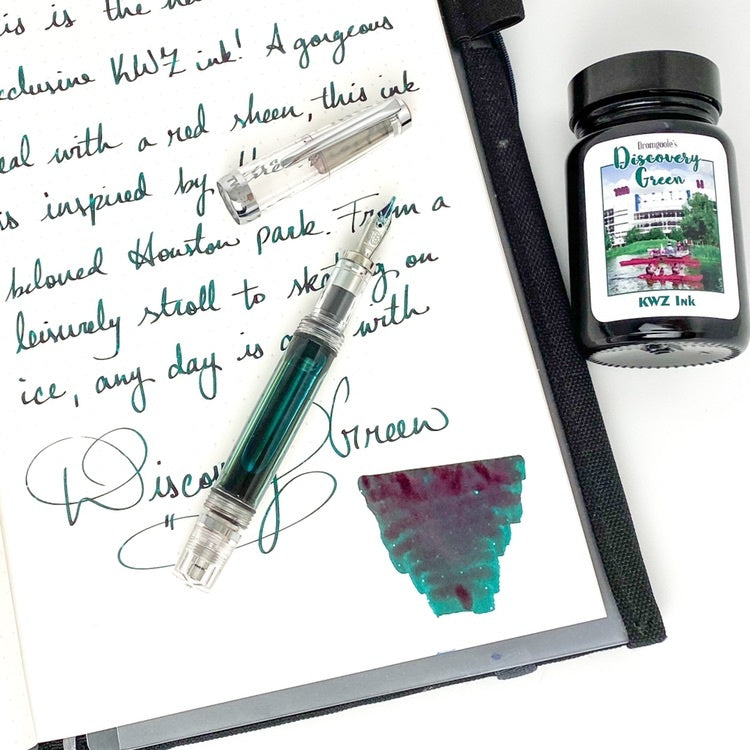 is is the
KWZ ink! A gorgeous
with a red sheen, this ink
is inspired by
beloved Houston park. From a
leisurely stroll to skating on
ice, any day is with
Discovery Green
Dromgoole's
Discovery
Green
KWZ Ink